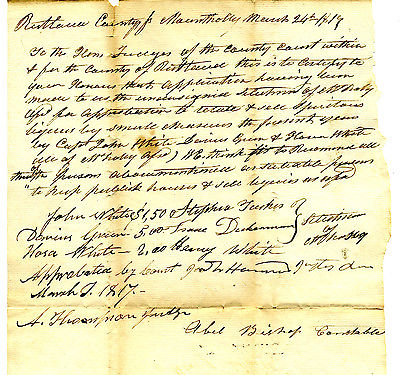 Rutland County ss Mountholly March 24th 1817
To the Hon Judges of the County Court within
& for the County of Rutland this is to Certify to
your Honours that Application having been
made to us the undersigned Selectmen of Mt Holly
for Approbation to retail & sell Spiritous
liquors by small measures the present year
by Capt John White Darius Green & Hosea White
all of Mt holly We think fit to Recommend all
the persons abovementioned as suitable persons
to keep publick houses & sell liquors as
John White $1,50 Stephen Tucker
Darius Green 5.00 Isaac Dickerman Selectmen
Hosea White 2,00 Henry White
Approbated by Court
March 1817.-
A. Thompson Judge
Abel Bishop Constable